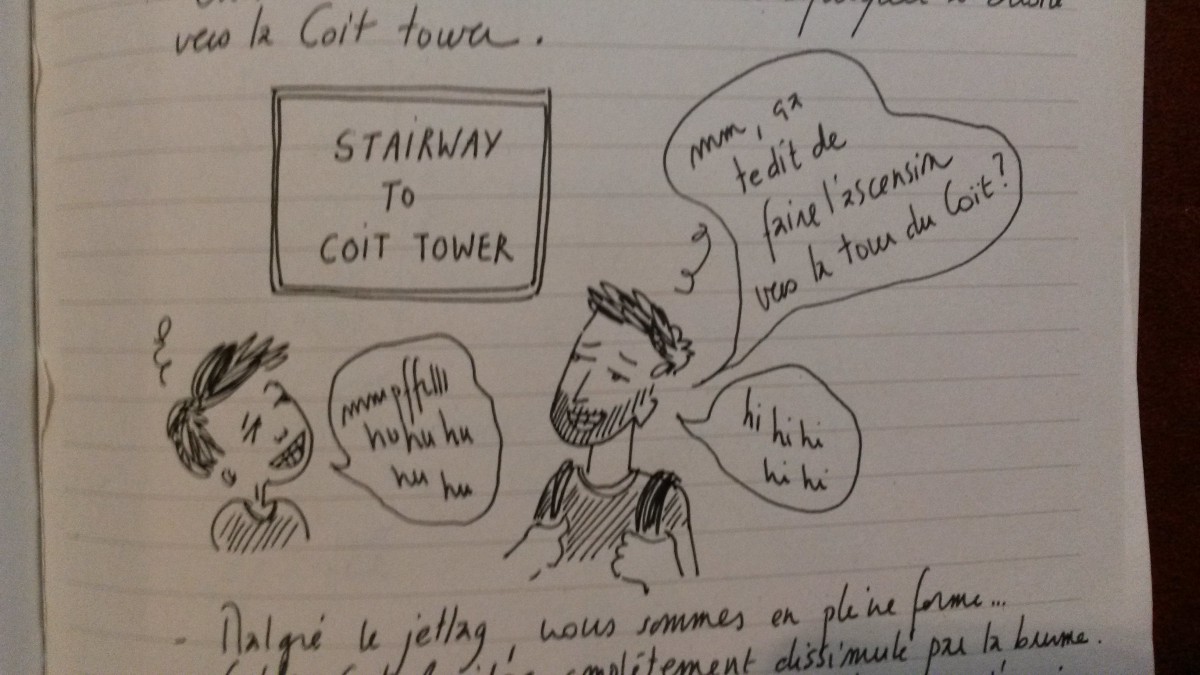 vers la Coit tower.
STAIRWAY
TO
COIT TOWER
mm, ça
te dit de
faire l'ascension
vers la tour du Coït?
mmmpffffllll
hu hu hu
hu hu
hi
hi hi
hi hi
- Malgré le jetlag, nous sommes en pleine forme...
complètement dissimulé par la brume.